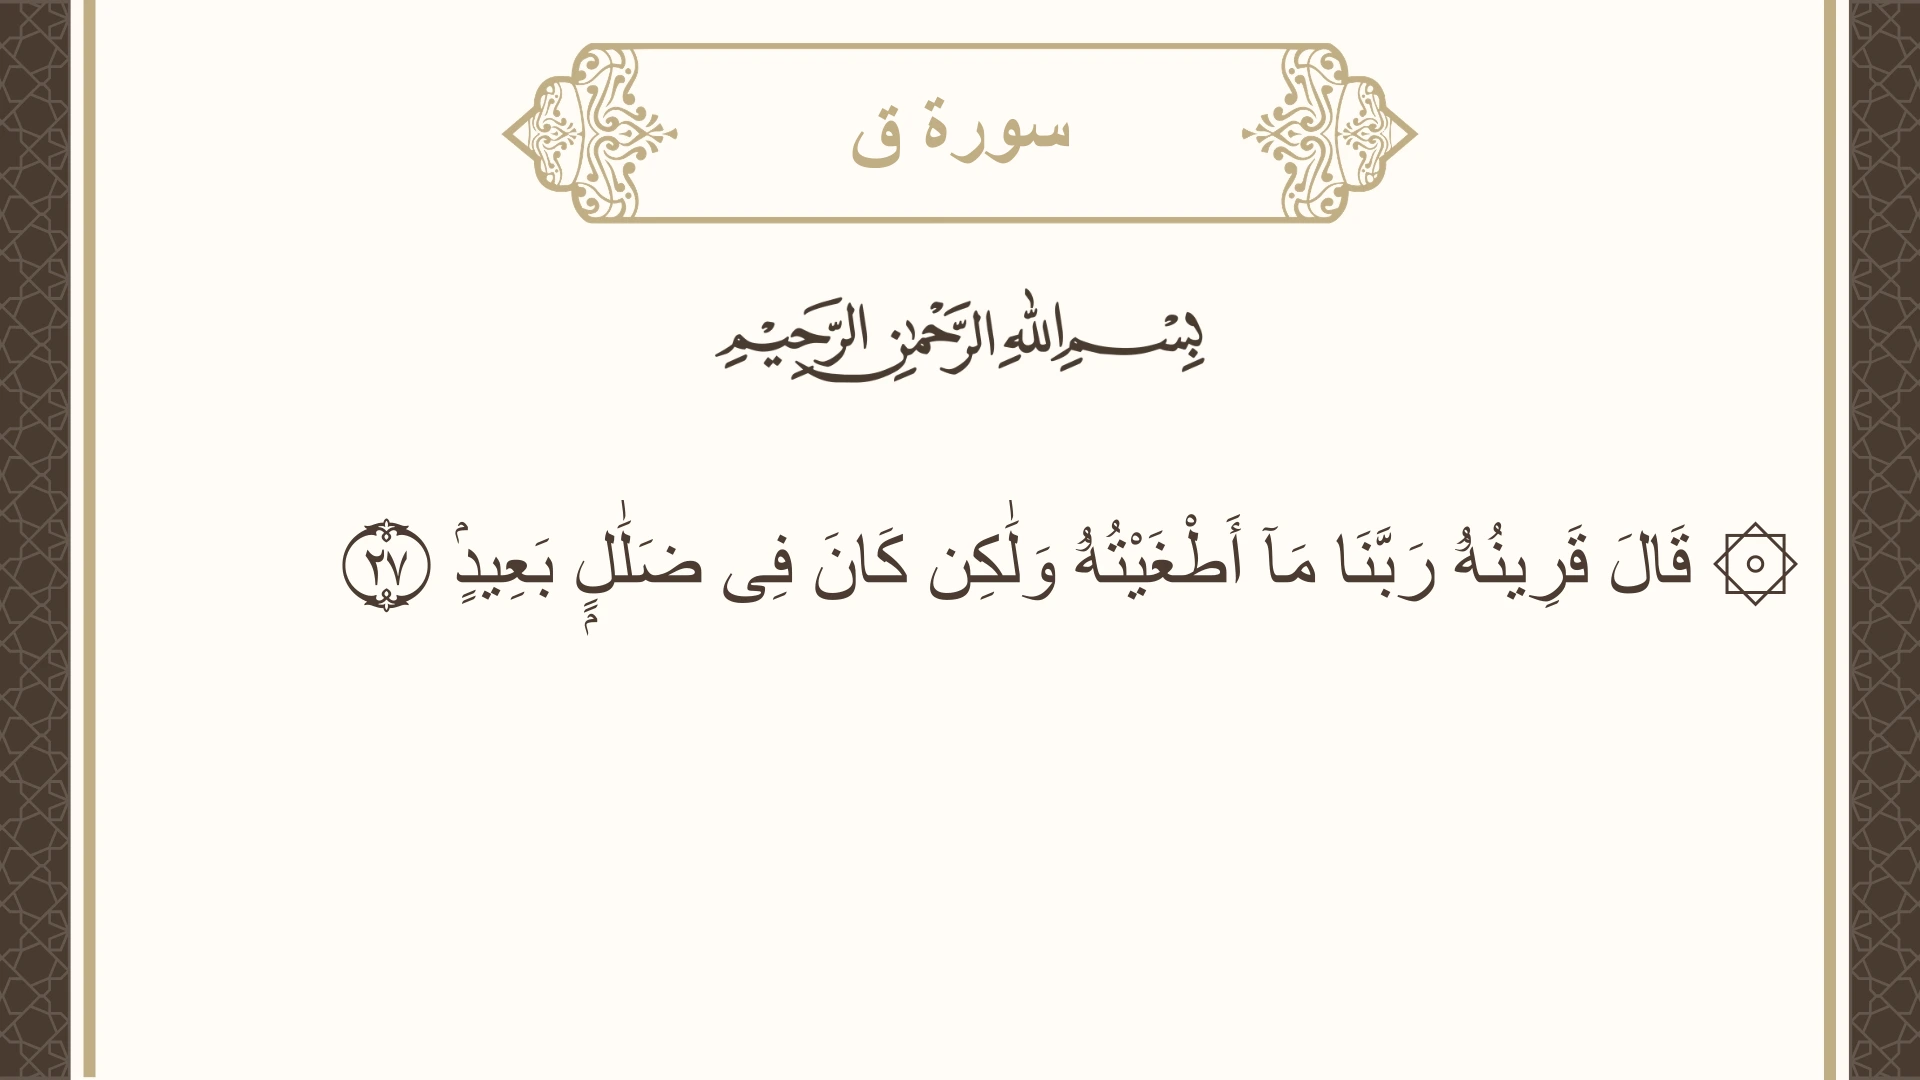 سورة ق
بِسْمِ اللَّهِ الرَّحْمَٰنِ الرَّحِيمِ
۞ قَالَ قَرِينُهُۥ رَبَّنَا مَآ أَطْغَيْتُهُۥ وَلَٰكِن كَانَ فِى ضَلَٰلٍۭ بَعِيدٍۢ ٢٧